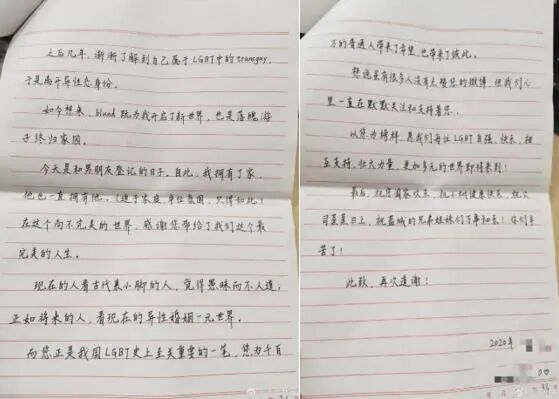 之后几年，渐渐了解到自己属于LGBT中的transguy，
于是离开异性恋身份。
如今想来，blued既为我开启了新世界，也是落魄游
子终归家园。
今天是和男朋友登记的日子。自此，我拥有了家，
他也一直拥有他。（迫于家庭、单位氛围，只得如此）
在这个尚不完美的世界，感谢您带给了我们这个最
完美的人生。
现在的人看古代裹小脚的人，觉得愚昧而不人道，
正如将来的人，看现在的异性婚姻一元世界。
而您正是我国LGBT史上至关重要的一笔，您为千百
万的普通人带来了希望，也带来了彼此。
想说虽有很多人没有点赞您的微博，但我们心
里一直在默默关注和支持着您。
以您为榜样，愿我们每位LGBT自强、快乐，相
互支持，壮大力量，更加多元的世界即将来到！
最后，祝您阖家欢乐，祝小树健康快乐，祝公
司蒸蒸日上，祝蓝城的兄弟姐妹们万事如意！你们辛
苦了！
此致，再次道谢！
2020年